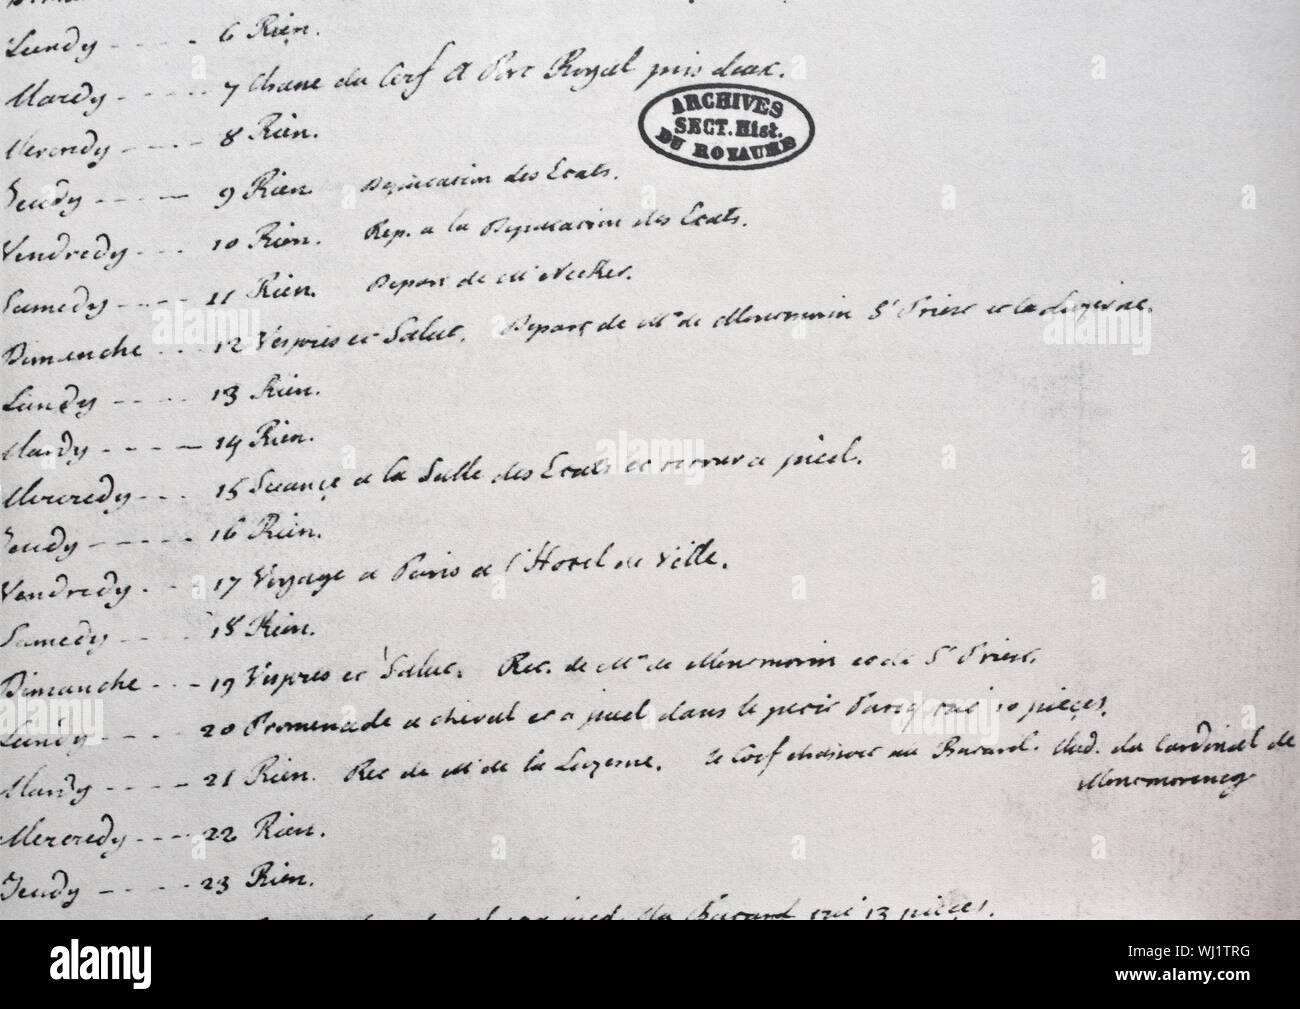 Lundy - - - - - 6 Rien.
Mardy - - - - - 7 Chasse du Cerf a Port Royal pris deux.
ARCHIVES
SECT. Hist.
DU ROYAUME
Mercredy - - - - 8 Rien.
Jeudy - - - - 9 Rien Deputation des Etats.
Vendredy - - - 10 Rien. Rep. a la Deputation des Etats.
Samedy - - - - 11 Rien. Depart de Mr Necker.
Dimanche - - - 12 Vespres et Salut. Depart de Mrs de Montmorin St Priest et la Luzerne.
Lundy - - - - 13 Rien.
Mardy - - - - - 14 Rien.
Mercredy - - - 15 Seance a la Salle des Etats et retour a pied.
Jeudy - - - - - 16 Rien.
Vendredy - - - 17 Voyage a Paris a l'Hotel de Ville.
Samedy - - - - 18 Rien.
Dimanche - - - 19 Vespres et Salut. Ret. de Mrs de Montmorin et de St Priest.
Lundy - - - - 20 Promenade a cheval et a pied dans le petit Parc tué 10 pieces.
Mardy - - - - - 21 Rien. Ret de Mr de la Luzerne. le Cerf chassoit au Butard. Aud. du Cardinal de
Montmorency
Mercredy - - - - 22 Rien.
Jeudy - - - - - 23 Rien.
du Butard tué 13 pieces.
alamy
a
alamy
Image ID: WJ1TRG
www.alamy.com